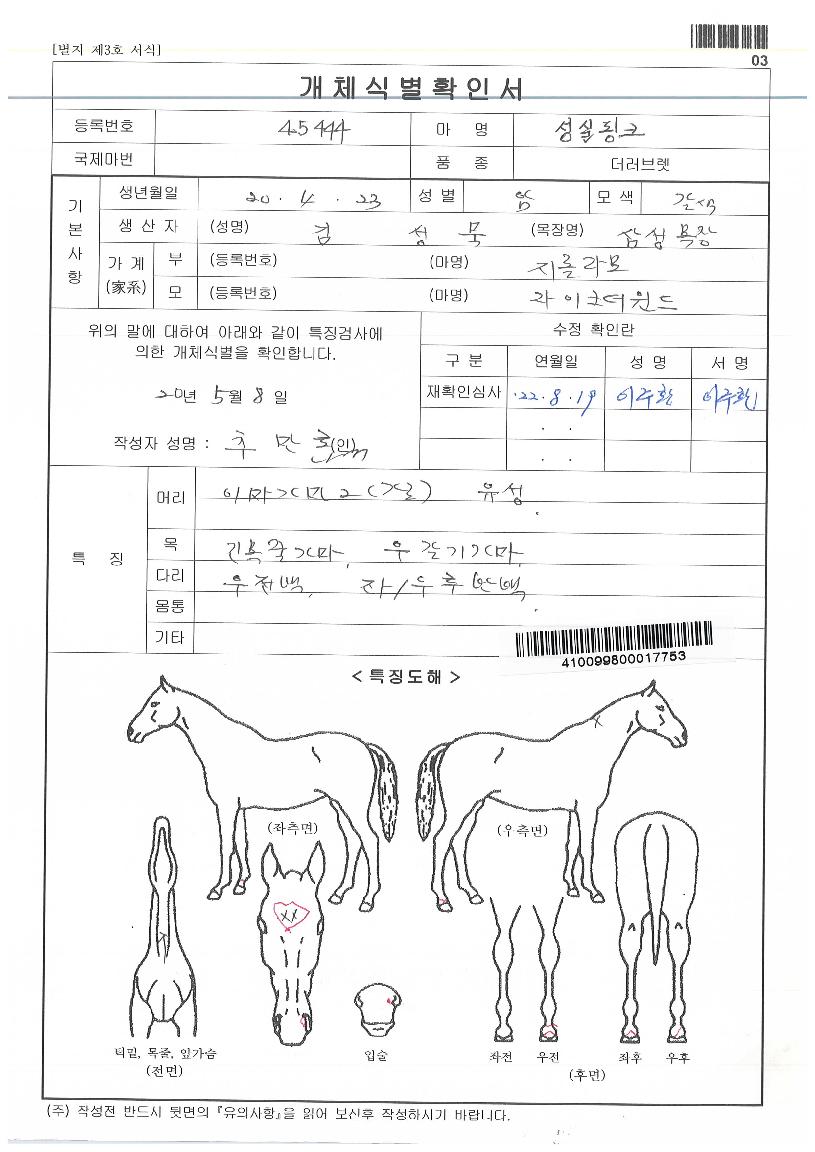 [별지 제3호 서식]
03
개체식별확인서
등록번호 45444 마 명 성실핑크
국제마번 품 종 더러브렛
기본사항
생년월일 20 . 4 . 23 성 별 암 모 색 갈색
생 산 자 (성명) 김 성 묵 (목장명) 삼성목장
가 계 (家系) 부 (등록번호) (마명) 지롤라모
모 (등록번호) (마명) 라이크더윈드
위의 말에 대하여 아래와 같이 특징검사에
의한 개체식별을 확인합니다.
20년 5월 8 일
작성자 성명 : 추 만 호 (인)
수정 확인란
구 분 연월일 성 명 서 명
재확인심사 '22 . 8 . 19 이주환 이주환
. .
. .
특 징
머리 이마가마2(거) 유성
목 긴목줄가마, 우갈기가마
다리 우전백, 좌/우후반백
몸통
기타
410099800017753
< 특징도해 >
(좌측면) (우측면)
턱밑, 목줄, 앞가슴
(전면)
입술
좌전 우전 좌후 우후
(후면)
(주) 작성전 반드시 뒷면의 『유의사항』을 읽어 보신후 작성하시기 바랍니다.